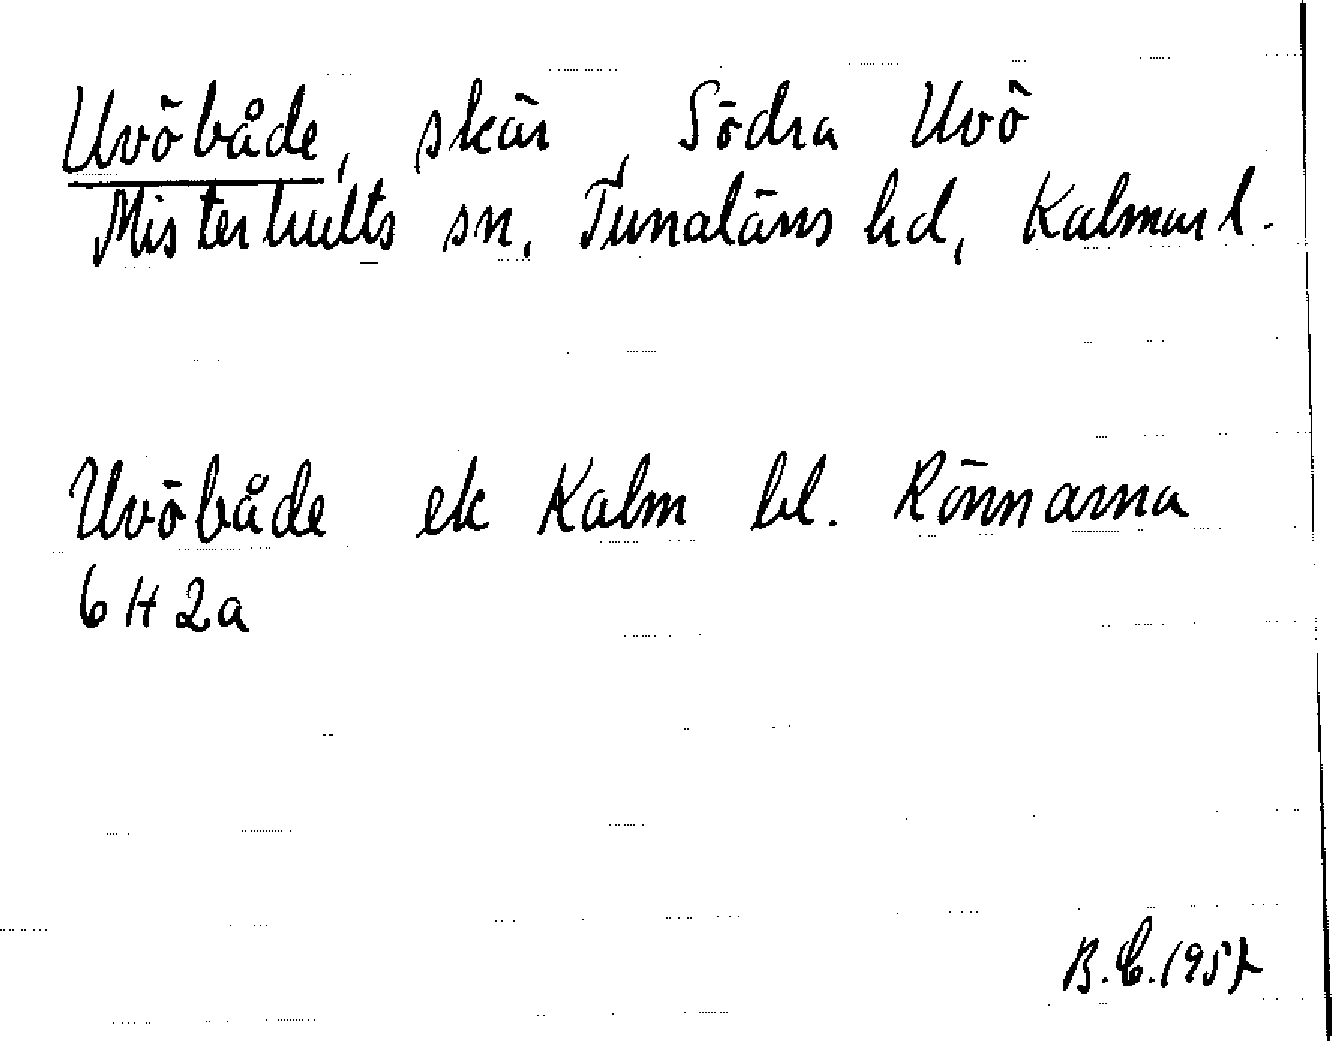 Uvöbåde, skär, Södra Uvö
Misterhults sn, Tunaläns hd, Kalmar l.
Uvöbåde ek Kalm bl. Rönnarna
6 H 2a
B.E. 1957